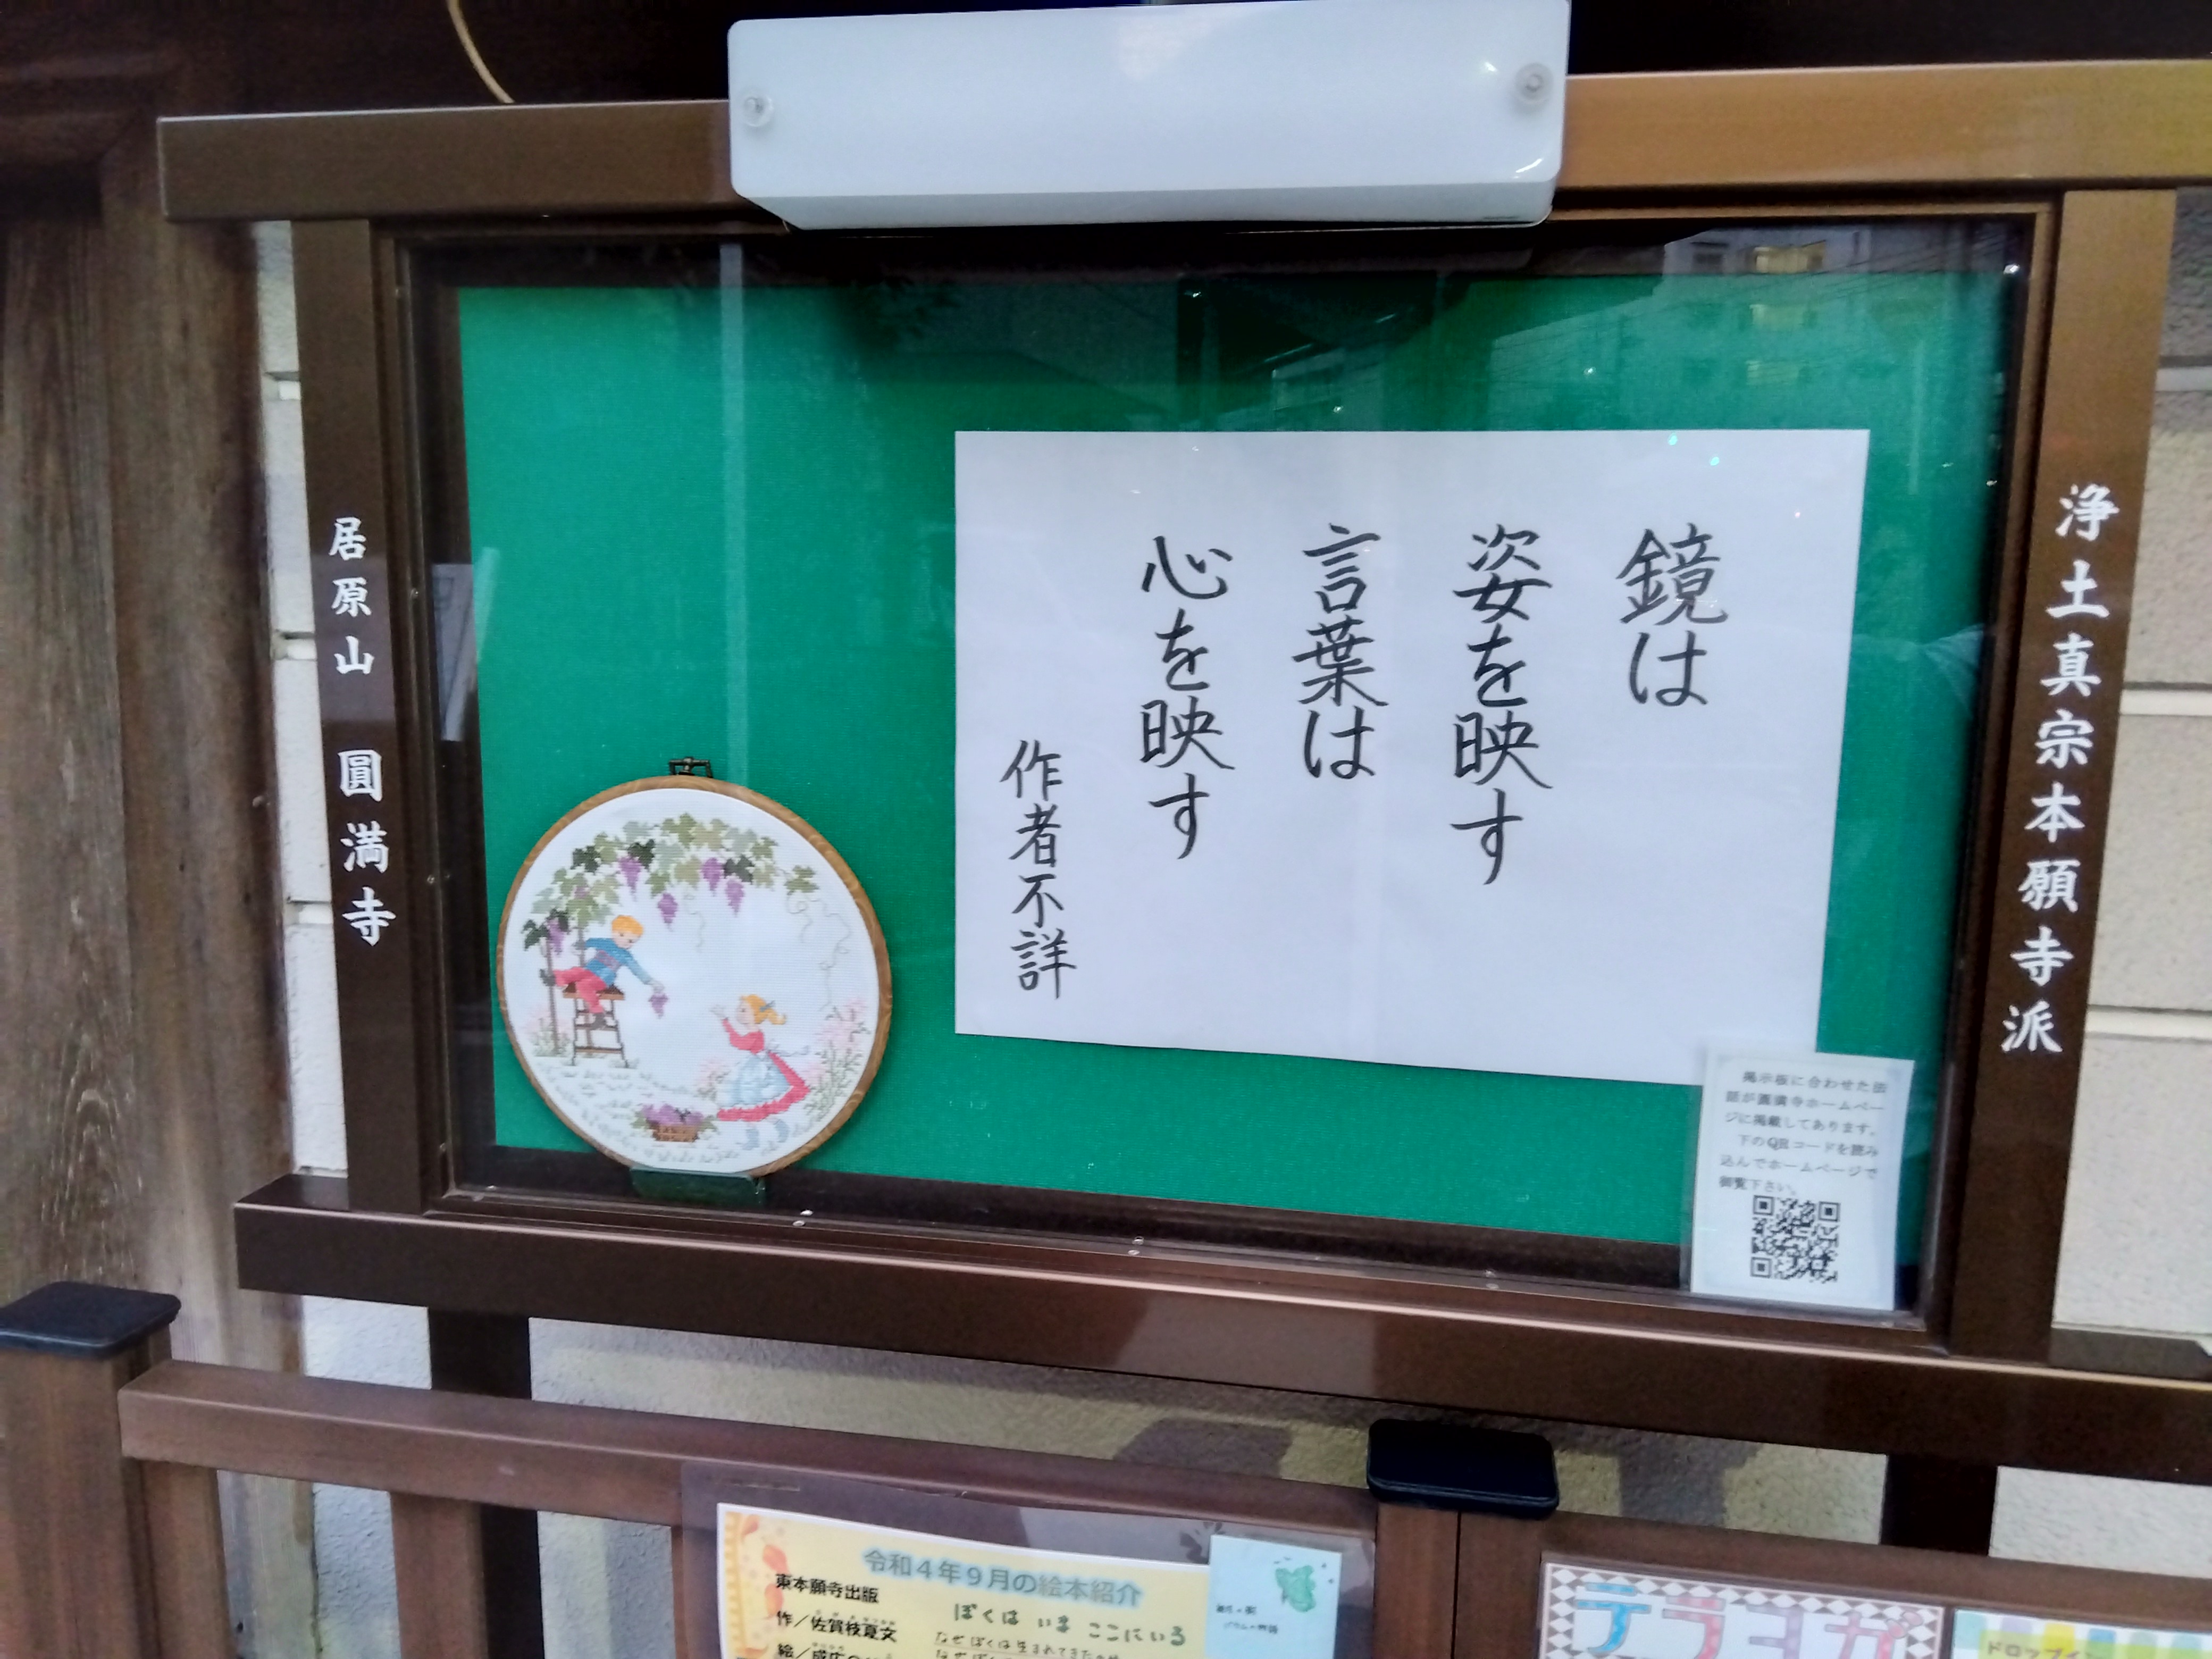 浄土真宗本願寺派
鏡は
姿を映す
言葉は
心を映す
作者不詳
居原山 圓満寺
掲示板に合わせた法
話が圓満寺ホームペー
ジに掲載してあります。
下のQRコードを読み
込んでホームページで
御覧下さい。
令和4年9月の絵本紹介
東本願寺出版
作/佐賀枝夏文
ぼくは いま ここにいる
なぜぼくは生まれてきた
絵/成広
テラヨガ
ドロップイン